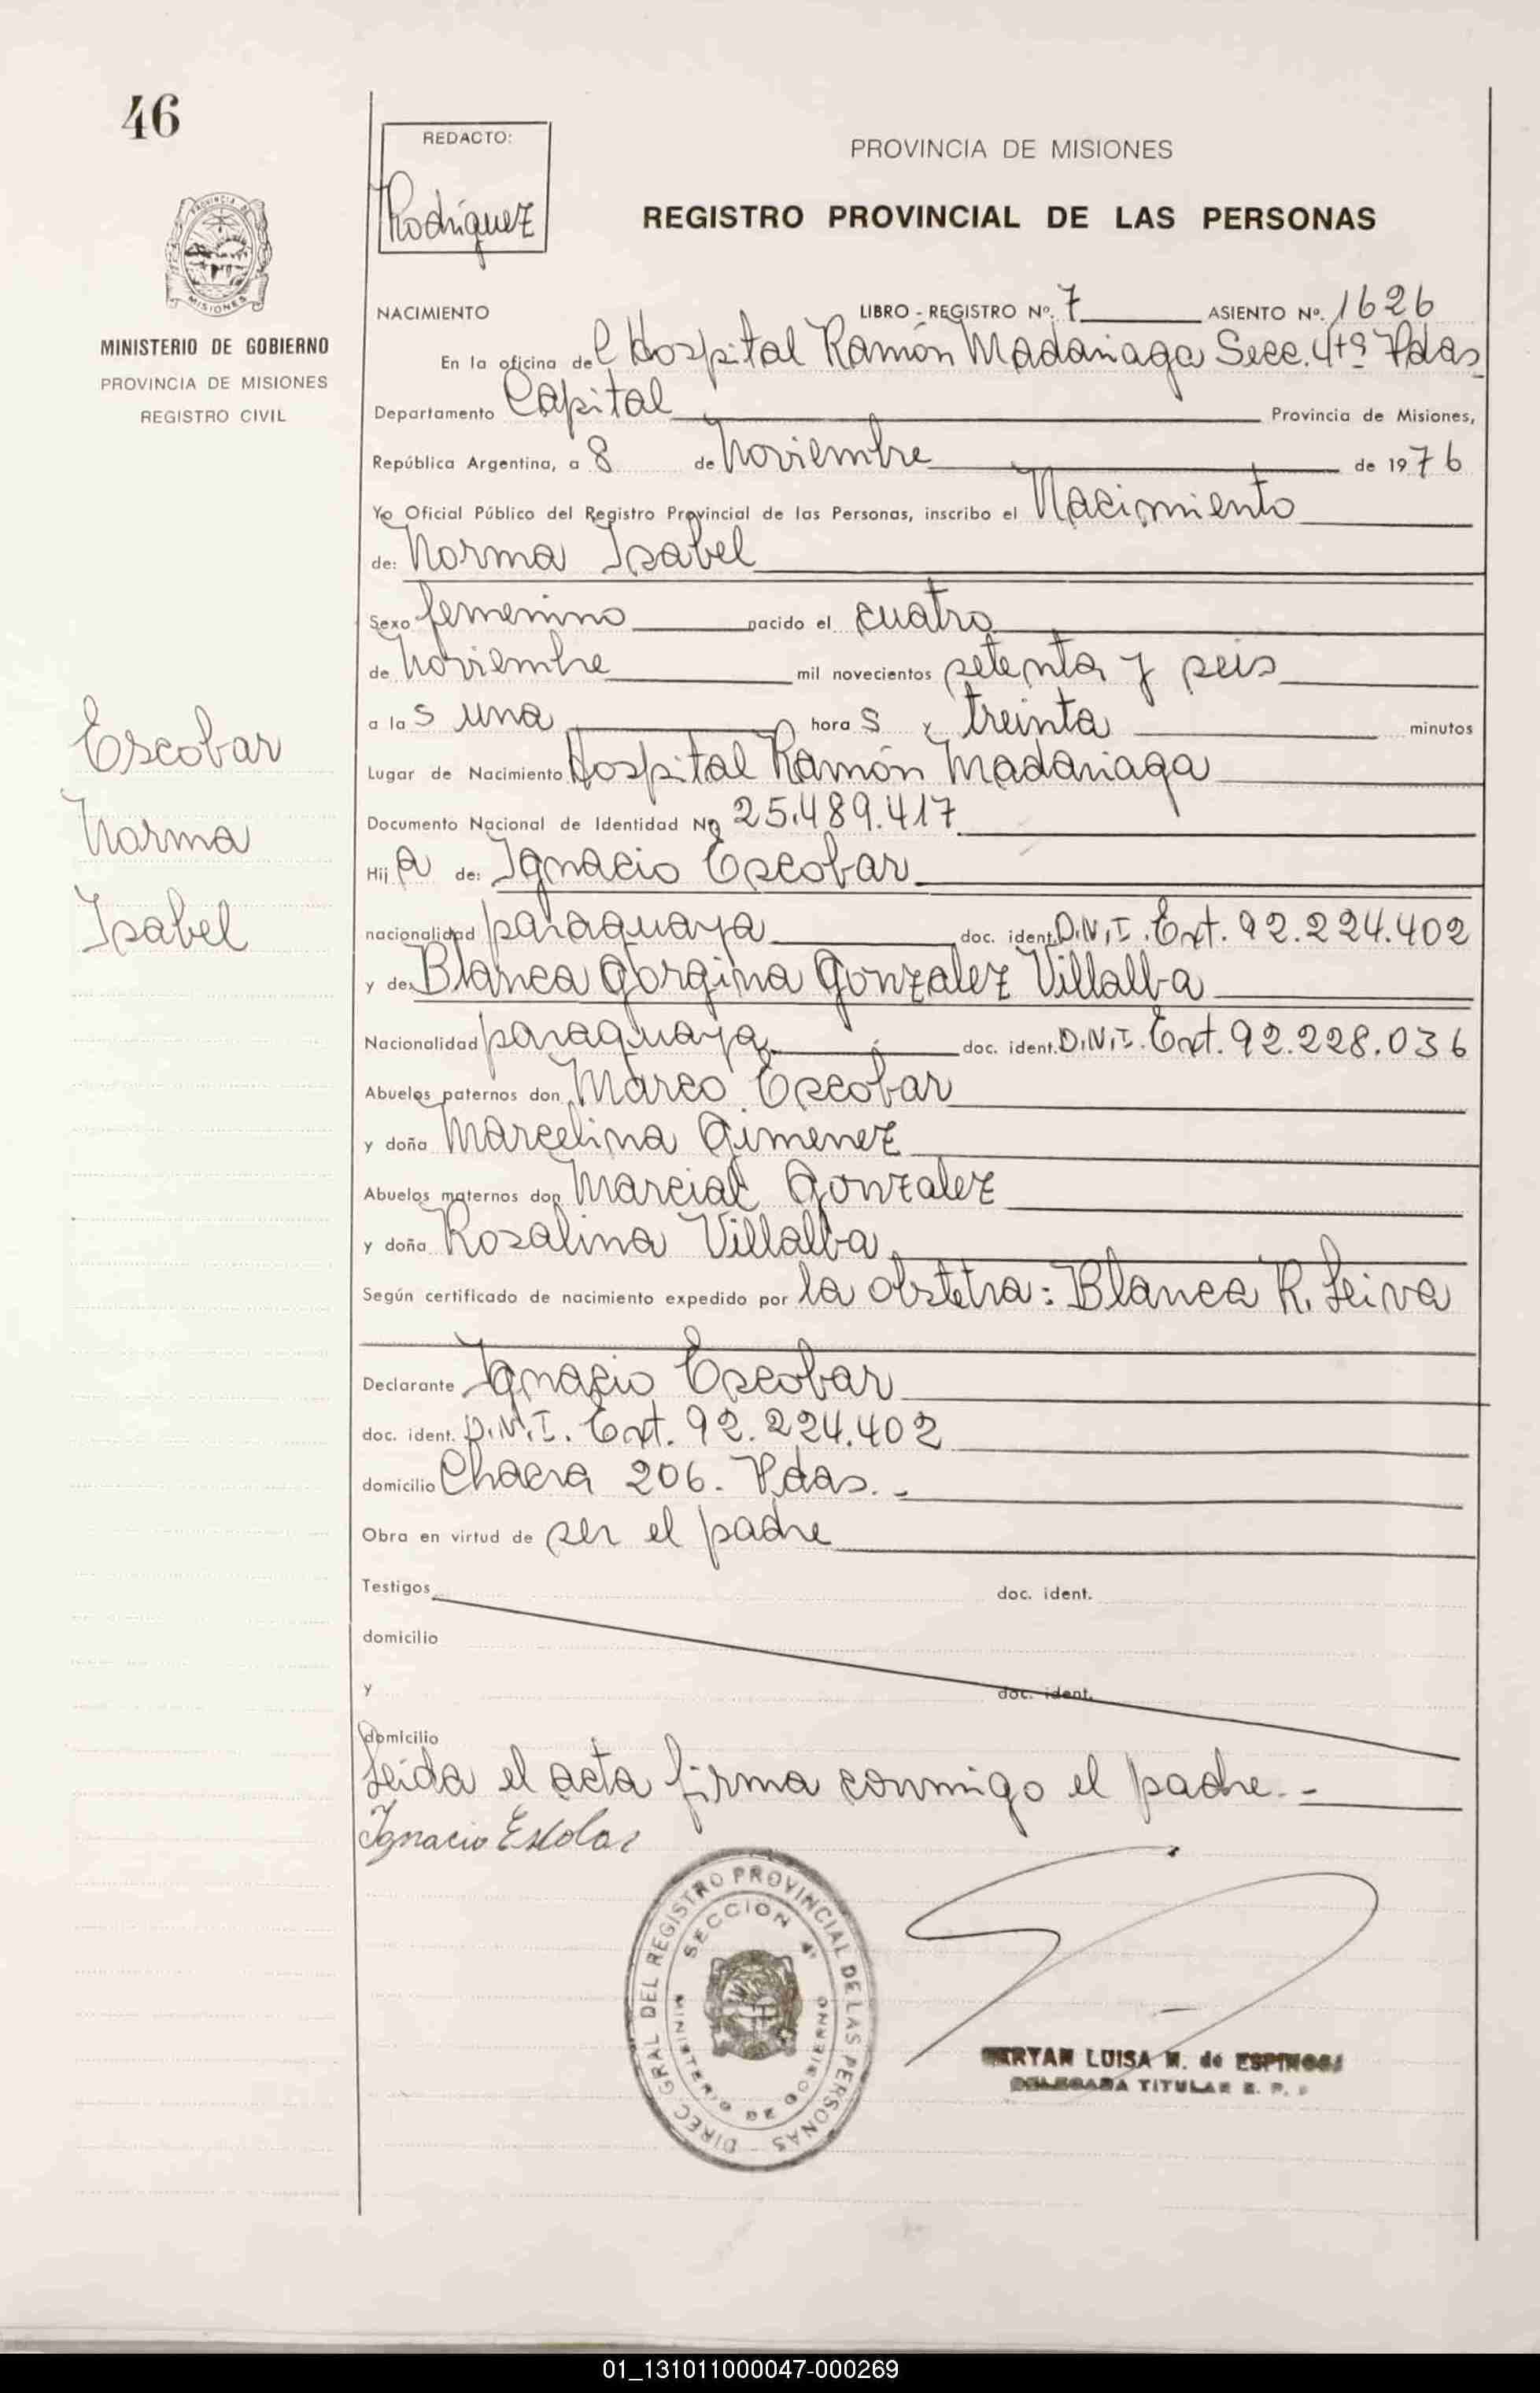 46
REDACTO:
Rodriguez
PROVINCIA DE MISIONES
REGISTRO PROVINCIAL DE LAS PERSONAS
PROVINCIA DE
MISIONES
MINISTERIO DE GOBIERNO
PROVINCIA DE MISIONES
REGISTRO CIVIL
NACIMIENTO LIBRO - REGISTRO Nº. 7 ASIENTO Nº. 1626
En la oficina del Hospital Ramón Madariaga Secc. 4tª Pdas
Departamento Capital Provincia de Misiones,
República Argentina, a 8 de Noviembre de 1976
Yo Oficial Público del Registro Provincial de las Personas, inscribo el Nacimiento
de: Norma Isabel
Sexo femenino nacido el cuatro
de Noviembre mil novecientos setenta y seis
a las una horas y treinta minutos
Lugar de Nacimiento Hospital Ramón Madariaga
Documento Nacional de Identidad Nº 25.489.417
Hija de: Ignacio Escobar
nacionalidad paraguaya doc. ident. D.N.I. Ext. 92.224.402
y de: Blanca Gorgina Gonzalez Villalba
Nacionalidad paraguaya doc. ident. D.N.I. Ext. 92.228.036
Abuelos paternos don Marco Escobar
y doña Marcelina Gimenez
Abuelos maternos don Marcial Gonzalez
y doña Rosalina Villalba
Según certificado de nacimiento expedido por la obstetra: Blanca R. Leiva
Declarante Ignacio Escobar
doc. ident. D.N.I. Ext. 92.224.402
domicilio Chacra 206. Pdas.-
Obra en virtud de ser el padre
Testigos doc. ident.
domicilio
y doc. ident.
domicilio
Leida el acta firma conmigo el padre.-
Ignacio Escobar
Escobar
Norma
Isabel
DIREC. GRAL DEL REGISTRO PROVINCIAL DE LAS PERSONAS
SECCION 4ª
MINISTERIO DE GOBIERNO
LUISA M. de ESPINOSA
DELEGADA TITULAR R. P.
01_131011000047-000269